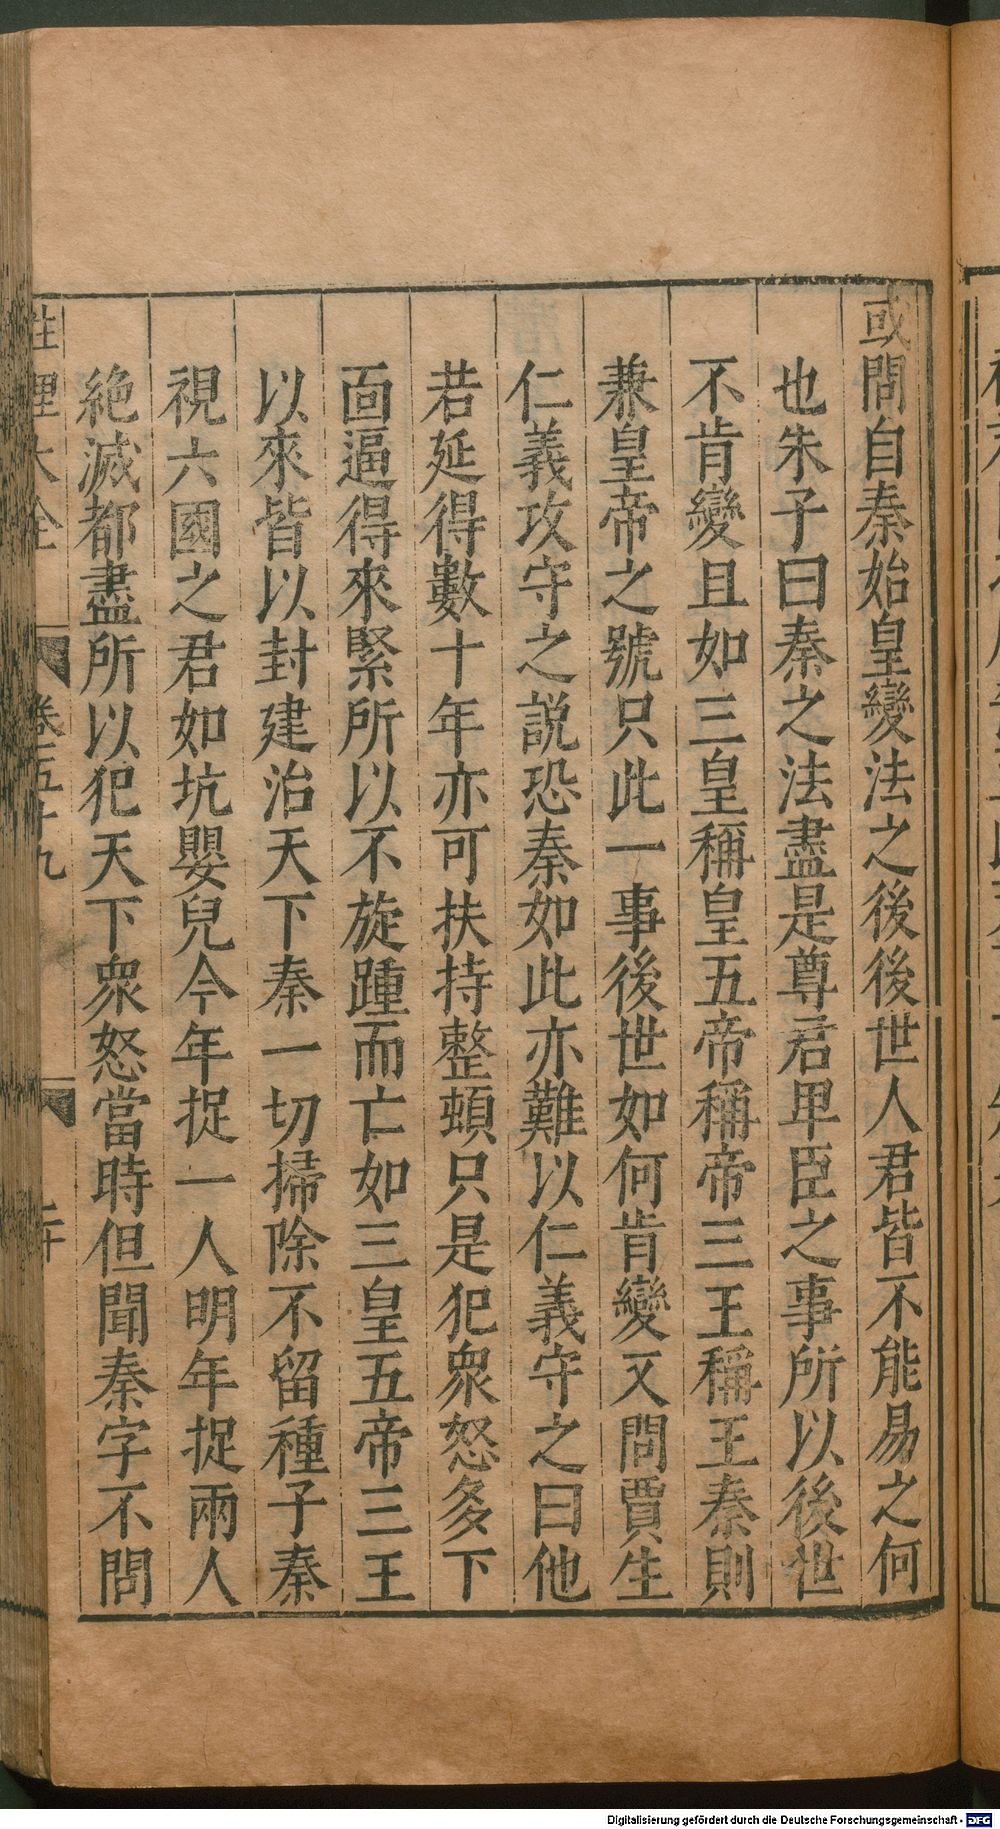 或問自秦始皇變法之後後世人君皆不能易之何
也朱子曰秦之法盡是尊君卑臣之事所以後世
不肯變且如三皇稱皇五帝稱帝三王稱王秦則
兼皇帝之號只此一事後世如何肯變又問賈生
仁義攻守之說恐秦如此亦難以仁義守之曰他
若延得數十年亦可扶持整頓只是犯衆怒多下
面逼得來緊所以不旋踵而亡如三皇五帝三王
以來皆以封建治天下秦一切掃除不留種子秦
視六國之君如坑嬰兒今年捉一人明年捉兩人
絶滅都盡所以犯天下衆怒當時但聞秦字不問
性理大全 卷五十九
Digitalisierung gefördert durch die Deutsche Forschungsgemeinschaft - DFG